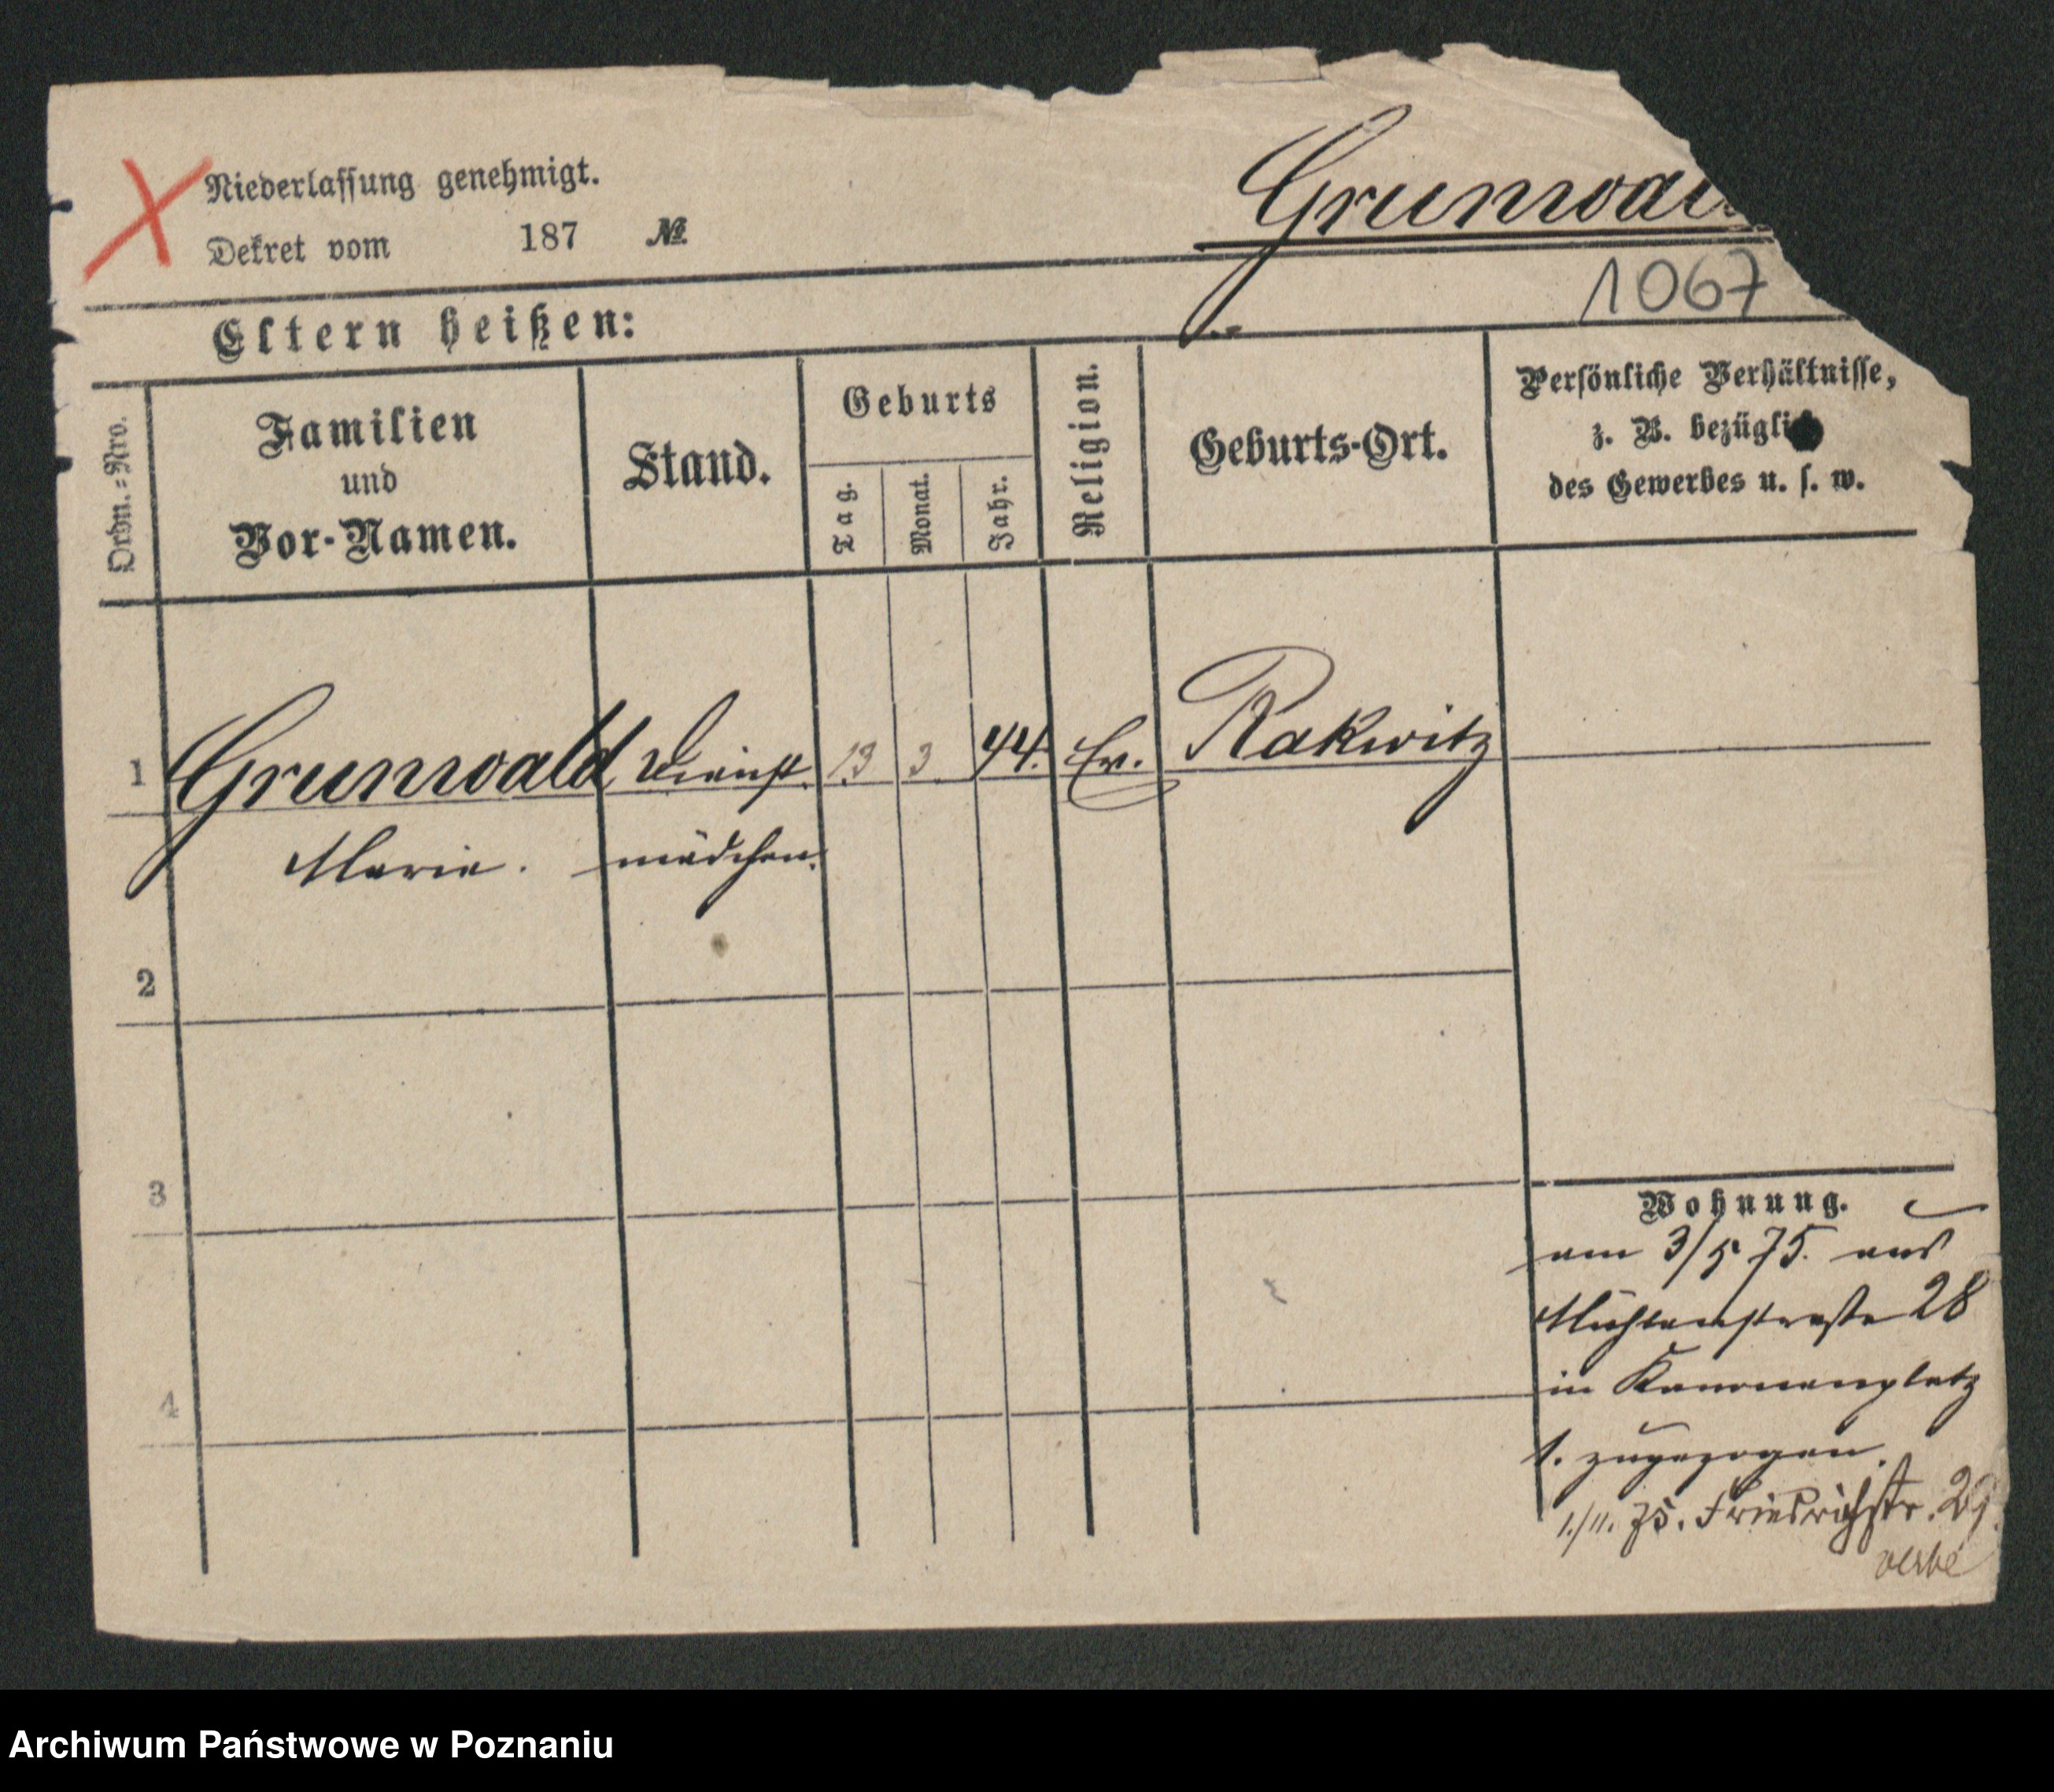 Niederlassung genehmigt.
Dekret vom 187 №
Grunwal
1067
Eltern heißen:
Ordn.=Nro.
Familien
und
Vor-Namen.
Stand.
Geburts
Tag.
Monat.
Jahr.
Religion.
Geburts-Ort.
Persönliche Verhältnisse,
z. B. bezügli
des Gewerbes u. s. w.
1 Grunwald Dienst 13 3 44. Ev. Rakwitz
Marie. mädchen.
2
3
4
Wohnung.
am 3/5 75. aus
Mühlenstraße 28
in Kanonenplatz
1. zugezogen.
1./11. 75. Friedrichstr. 29.
Archiwum Państwowe w Poznaniu